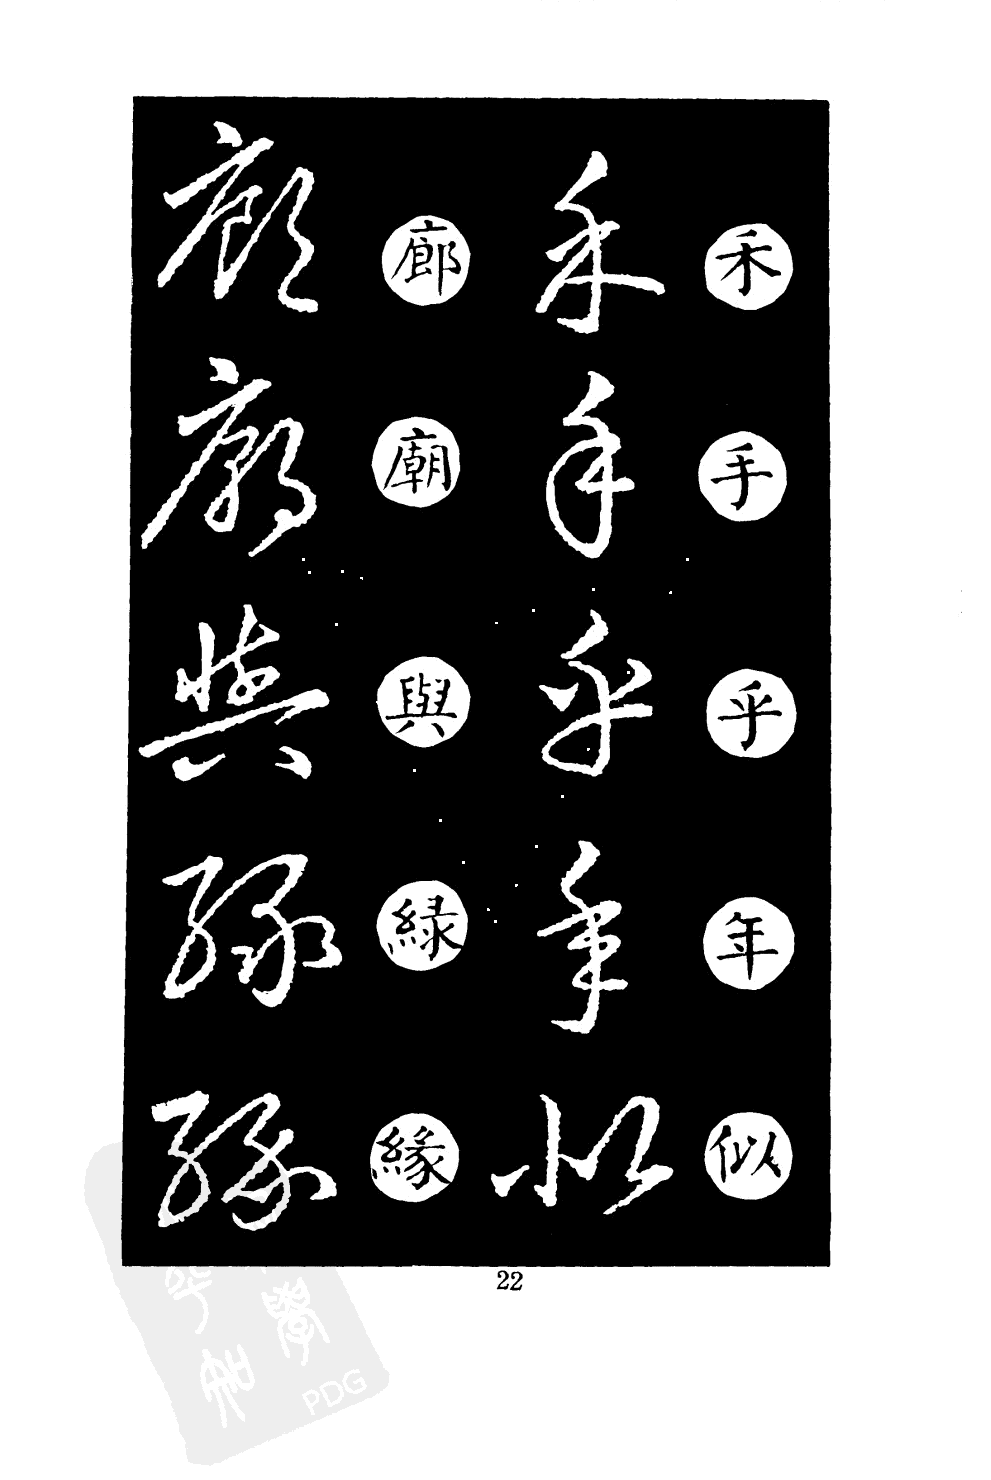 禾手乎年似
廊廟與緑緣
22
PDG